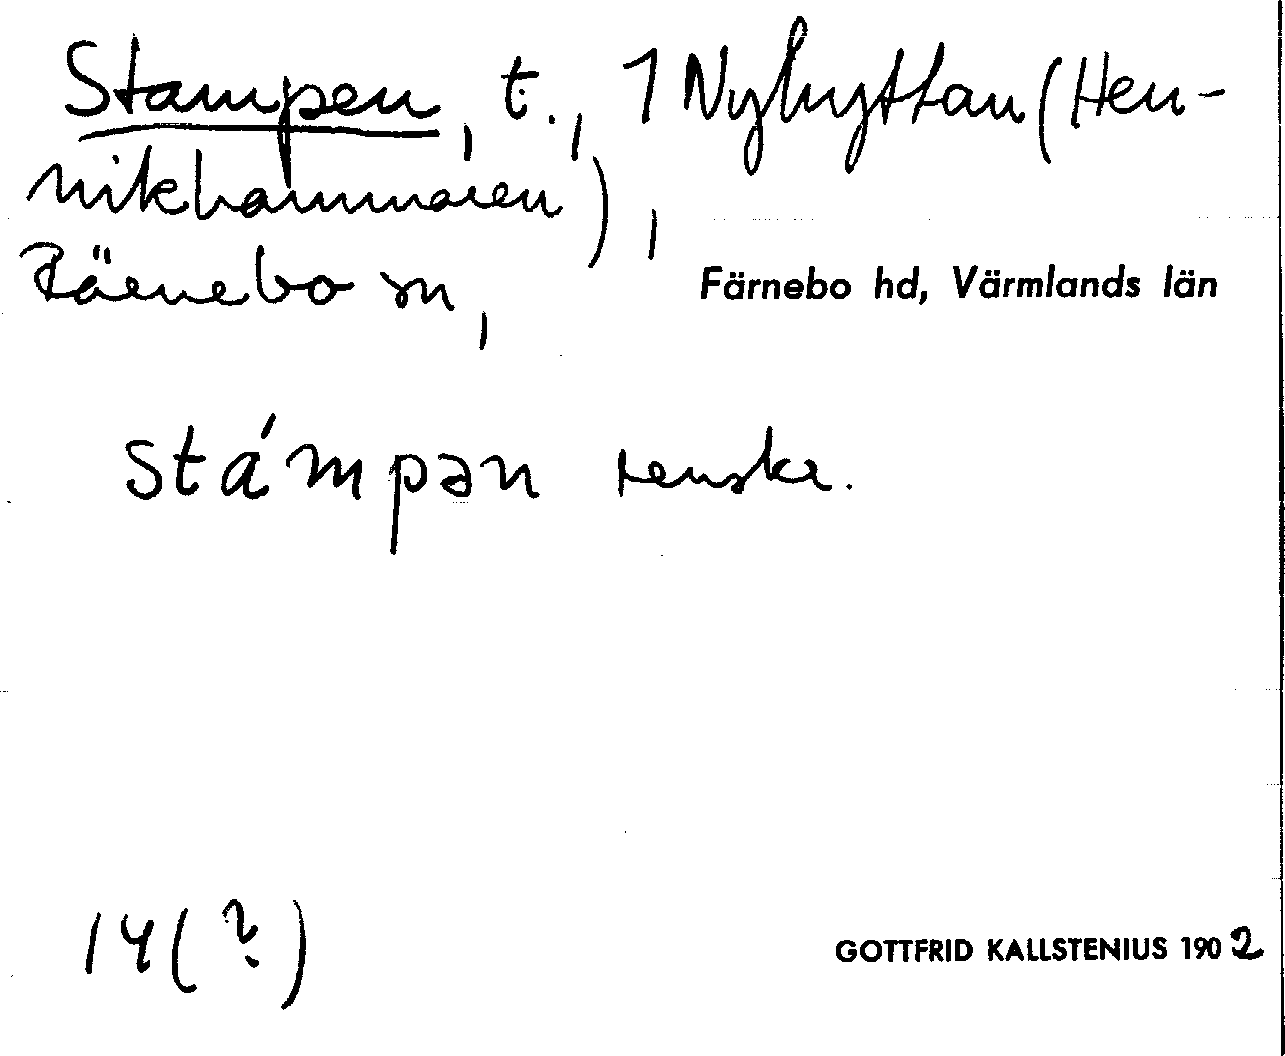 Stampen, t., 1 Nyhyttan (Hen-
nikhammaren),
Färnebo sn,
Färnebo hd, Värmlands län
stámpən renskr.
14 (?)
GOTTFRID KALLSTENIUS 1902